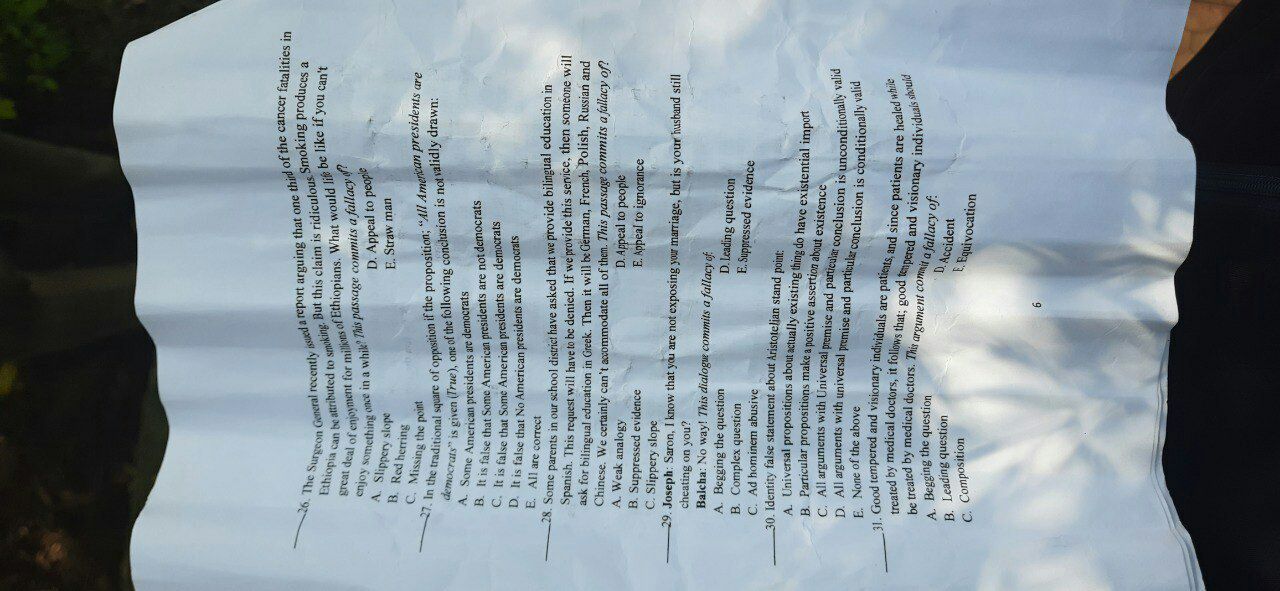 ____26. The Surgeon General recently issued a report arguing that one third of the cancer fatalities in
Ethiopia can be attributed to smoking. But this claim is ridiculous. Smoking produces a
great deal of enjoyment for millions of Ethiopians. What would life be like if you can't
enjoy something once in a while? This passage commits a fallacy of?
A. Slippery slope D. Appeal to people
B. Red herring E. Straw man
C. Missing the point
____27. In the traditional square of opposition if the proposition; "All American presidents are
democrats" is given (True), one of the following conclusion is not validly drawn:
A. Some American presidents are democrats
B. It is false that Some American presidents are not democrats
C. It is false that Some American presidents are democrats
D. It is false that No American presidents are democrats
E. All are correct
____28. Some parents in our school district have asked that we provide bilingual education in
Spanish. This request will have to be denied. If we provide this service, then someone will
ask for bilingual education in Greek. Then it will be German, French, Polish, Russian and
Chinese. We certainly can't accommodate all of them. This passage commits a fallacy of?
A. Weak analogy D. Appeal to people
B. Suppressed evidence E. Appeal to ignorance
C. Slippery slope
____29. Joseph: Saron, I know that you are not exposing your marriage, but is your husband still
cheating on you?
Balcha: No way! This dialogue commits a fallacy of:
A. Begging the question D. Leading question
B. Complex question E. Suppressed evidence
C. Ad hominem abusive
____30. Identity false statement about Aristotelian stand point:
A. Universal propositions about actually existing thing do have existential import
B. Particular propositions make a positive assertion about existence
C. All arguments with Universal premise and particular conclusion is unconditionally valid
D. All arguments with universal premise and particular conclusion is conditionally valid
E. None of the above
____31. Good tempered and visionary individuals are patients, and since patients are healed while
treated by medical doctors, it follows that; good tempered and visionary individuals should
be treated by medical doctors. This argument commit a fallacy of:
A. Begging the question D. Accident
B. Leading question E. Equivocation
C. Composition
6